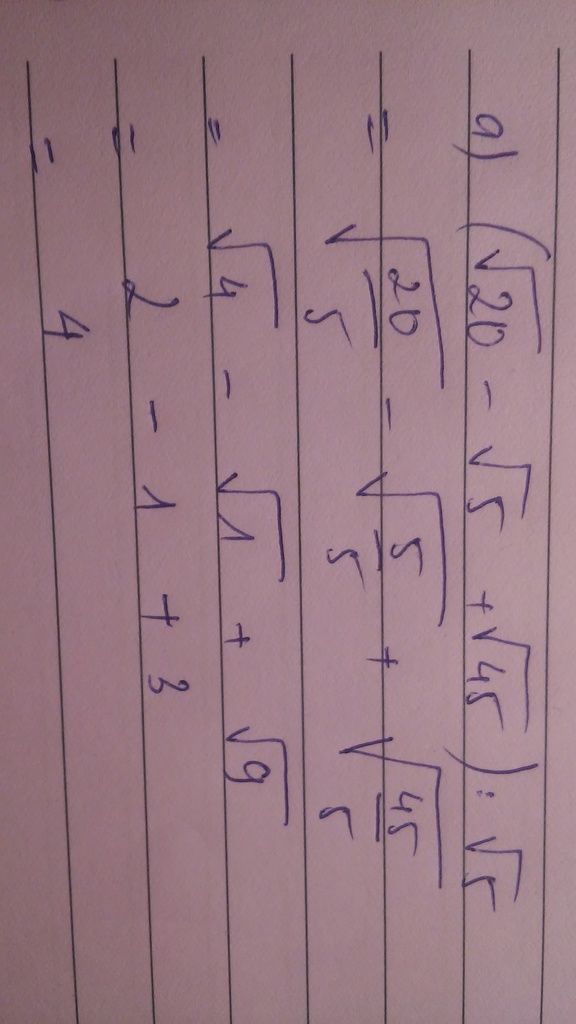 a) (√20 - √5 + √45) : √5
= √(20/5) - √(5/5) + √(45/5)
= √4 - √1 + √9
= 2 - 1 + 3
= 4